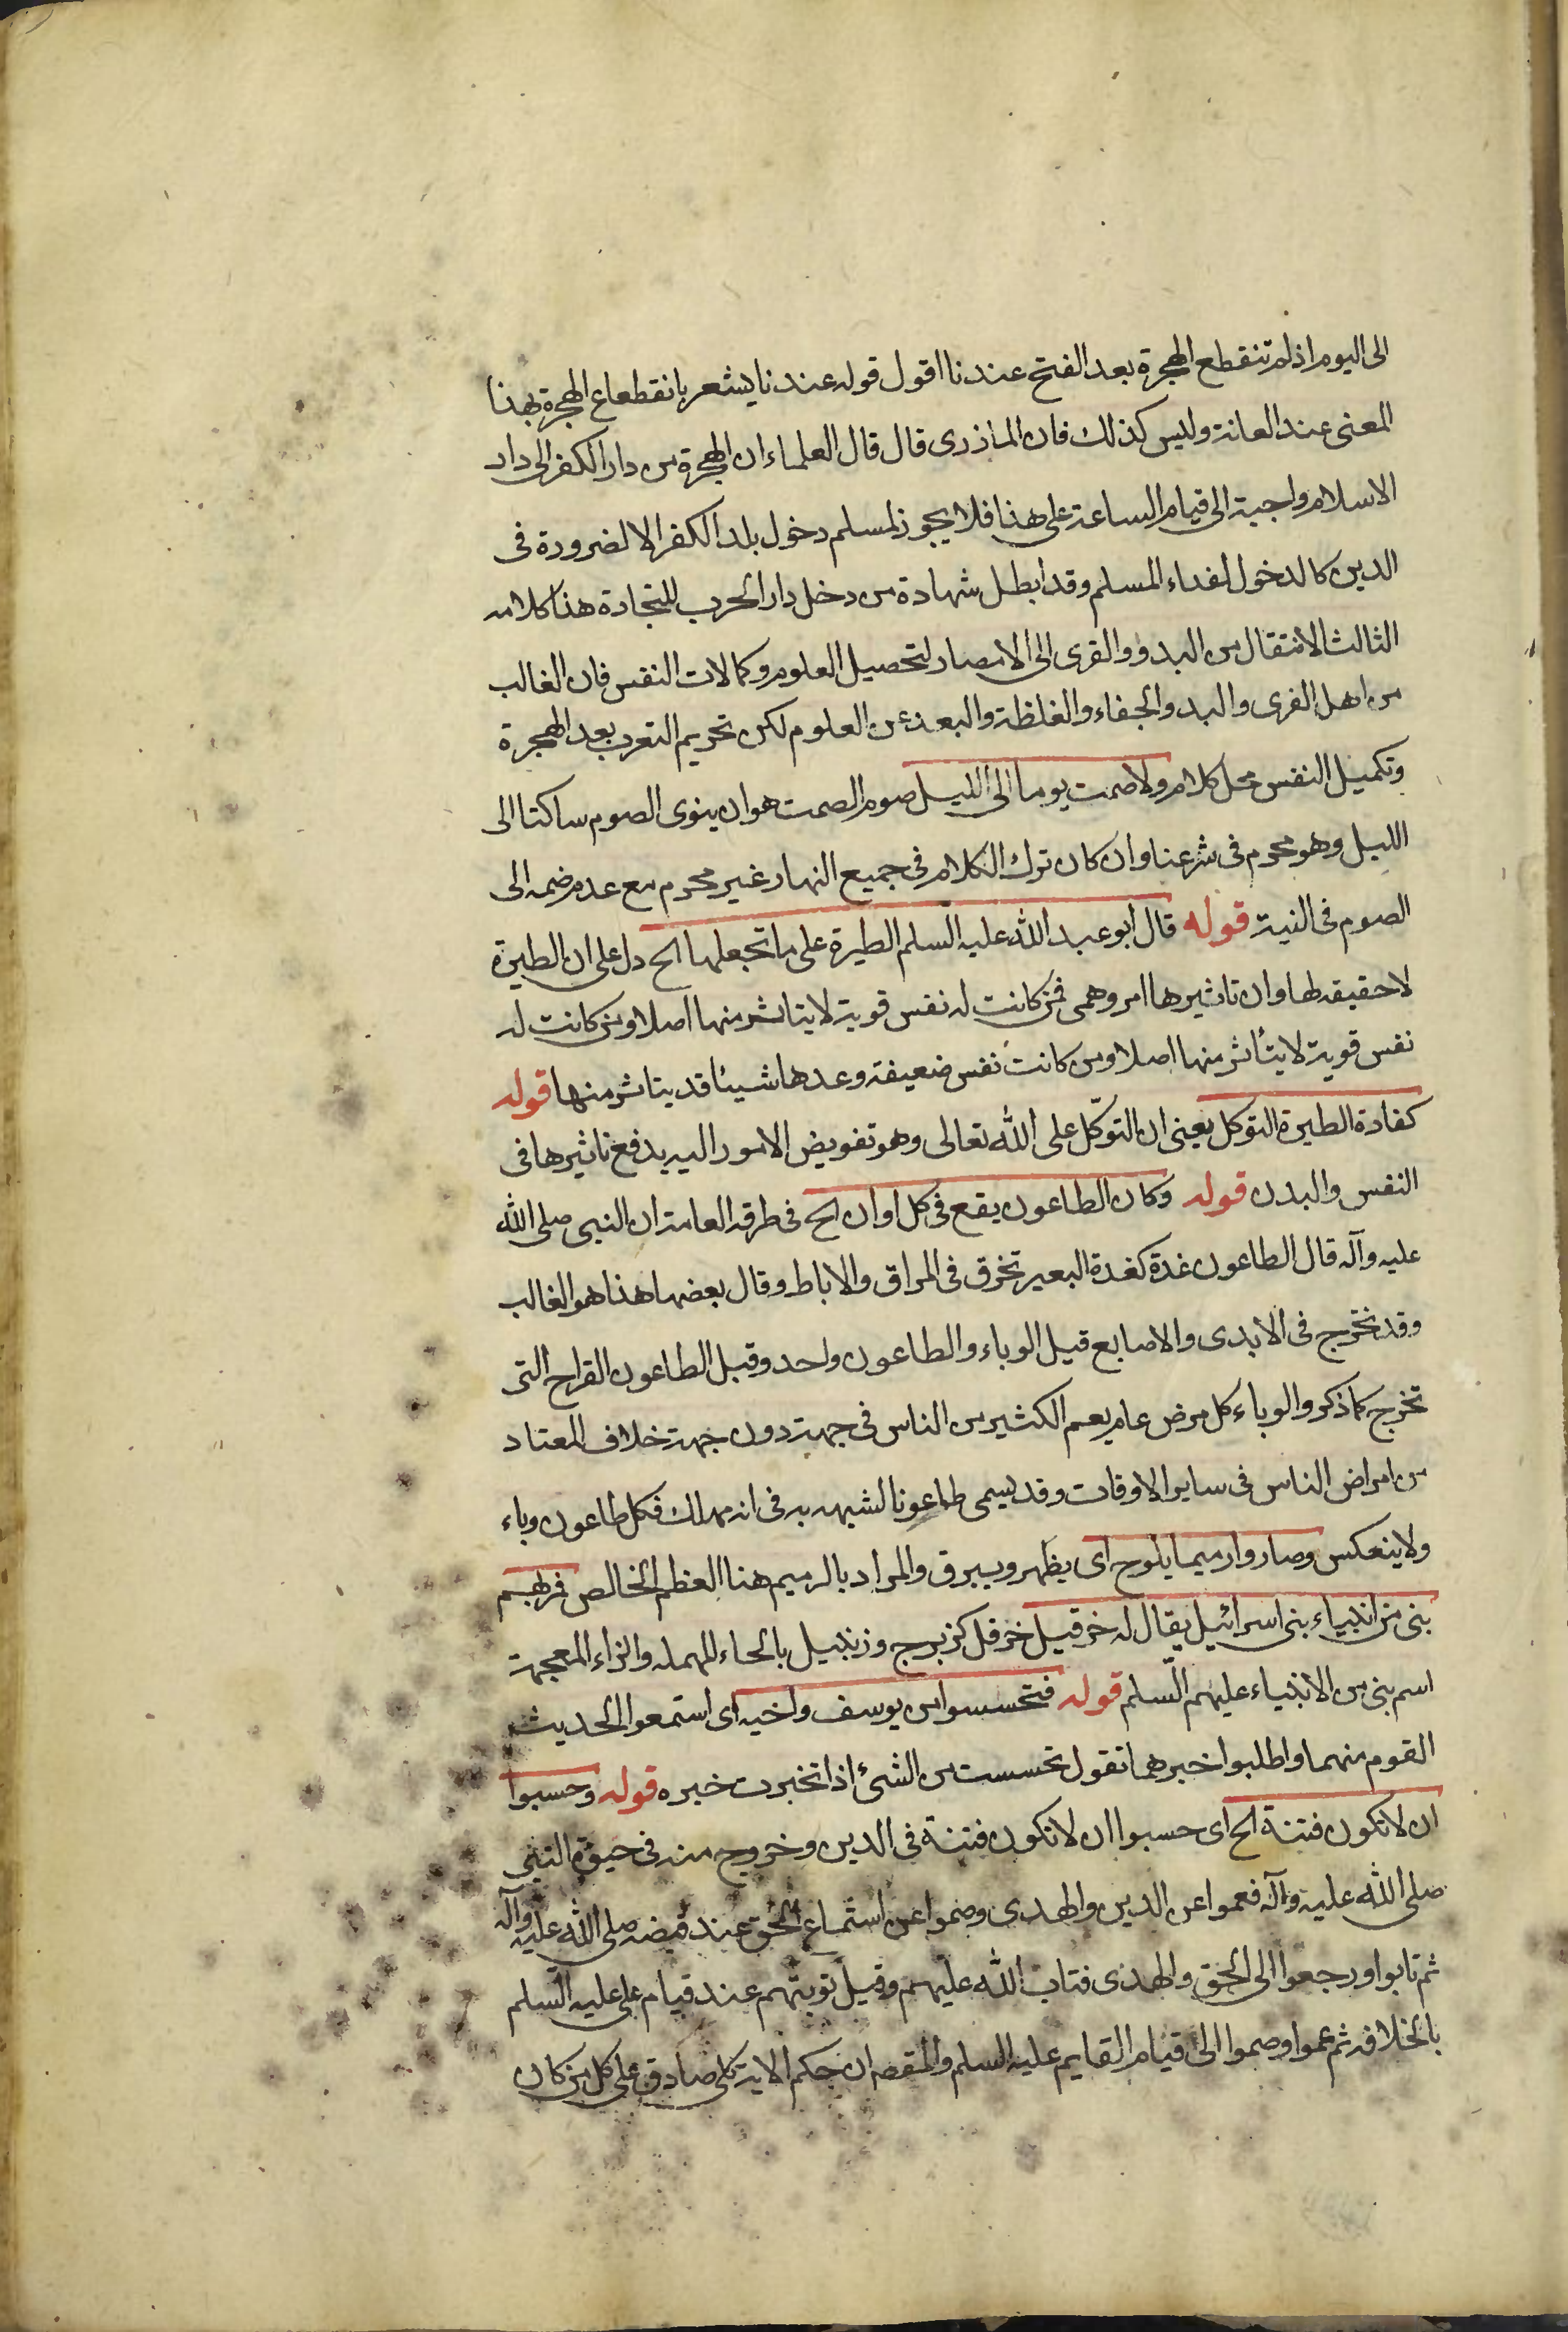 الى اليوم اذ لم تنقطع الهجرة بعد الفتح عندنا اقول قوله عندنا يشعر بانقطعاع الهجرة بهذا
المعنى عند العامة وليس كذلك فان المازرى قال قال العلماء ان الهجرة من دار الكفر الى دار
الاسلام واجبة الى قيام الساعة على هذا فلا يجوز لمسلم دخول بلد الكفر الا لضرورة فى
الدين كالدخول لفداء المسلم وقد ابطل شهادة من دخل دار الحرب للتجارة هذا كلامه
الثالث الانتقال من البدو والقرى الى الامصار لتحصيل العلوم وكمالات النفس فان الغالب
من اهل القرى والبدو الجفاء والغلظة والبعد عن العلوم لكن تحريم التعرب بعد الهجرة
وتكميل النفس محل كلام ولا صمت يوما الى الليل صوم الصمت هو ان ينوى الصوم ساكتا الى
الليل وهو محرم فى شرعنا وان كان ترك الكلام فى جميع النهار غير محرم مع عدم ضمه الى
الصوم فى النية قوله قال ابو عبد الله عليه السلم الطيرة على ما تجعلها الخ دل على ان الطيرة
لا حقيقه لها وان تاثيرها امر وهمى فمن كانت له نفس قوية لا يتاثر منها اصلا ومن كانت له
نفس قوية لا يتأثر منها اصلا ومن كانت نفس ضعيفة وعدها شيئا قد يتاثر منها قوله
كفارة الطيرة التوكل يعنى ان التوكّل على الله تعالى وهو تفويض الامور اليه يدفع تاثيرها فى
النفس والبدن قوله وكان الطاعون يقع فى كل اوان الخ فى طرقه العامة ان النبى صلى الله
عليه وآله قال الطاعون غدة كغدة البعير تخرق فى المراق والاباط وقال بعضها هذا هو الغالب
وقد تخرج فى الايدى والاصابع قيل الوباء والطاعون واحد وقيل الطاعون القراح التى
تخرج كما ذكر والوباء كل مرض عام يعم الكثير من الناس فى جهة دون جهة خلاف المعتاد
من امراض الناس فى ساير الاوقات وقد يسمى طاعونا لشبهه به فى انه مهلك فكل طاعون وباء
ولا ينعكس وصاروا رميما يلوح اى يظهر ويبرق والمراد بالرميم هنا العظم الخالص فمر بهم
نبى من انبياء بنى اسرائيل يقال له حزقيل حزقل كزبرج وزنبيل بالحاء المهمله والزاء المعجمة
اسم نبى من الانبياء عليهم السّلم قوله فتحسسوا من يوسف واخيه اى استمعوا الحديث
القوم منهما واطلبوا خبرهما تقول تحسست من الشئ اذا تخبرت خبره قوله وحسبوا
ان لا تكون فتنة الخ اى حسبوا ان لا تكون فتنة فى الدين وخروج منه فى حيوة النبى
صلى الله عليه وآله فعموا عن الدين والهدى وصموا عن استماع الحق عند قبضه صلى الله عليه وآله
ثم تابوا ورجعوا الى الحق والهدى فتاب الله عليهم وقيل توبتهم عند قيام على عليه السلم
بالخلافه ثم عموا وصموا الى قيام القايم عليه السلم والمقصه ان حكم الاية كلى صادق على كل من كان